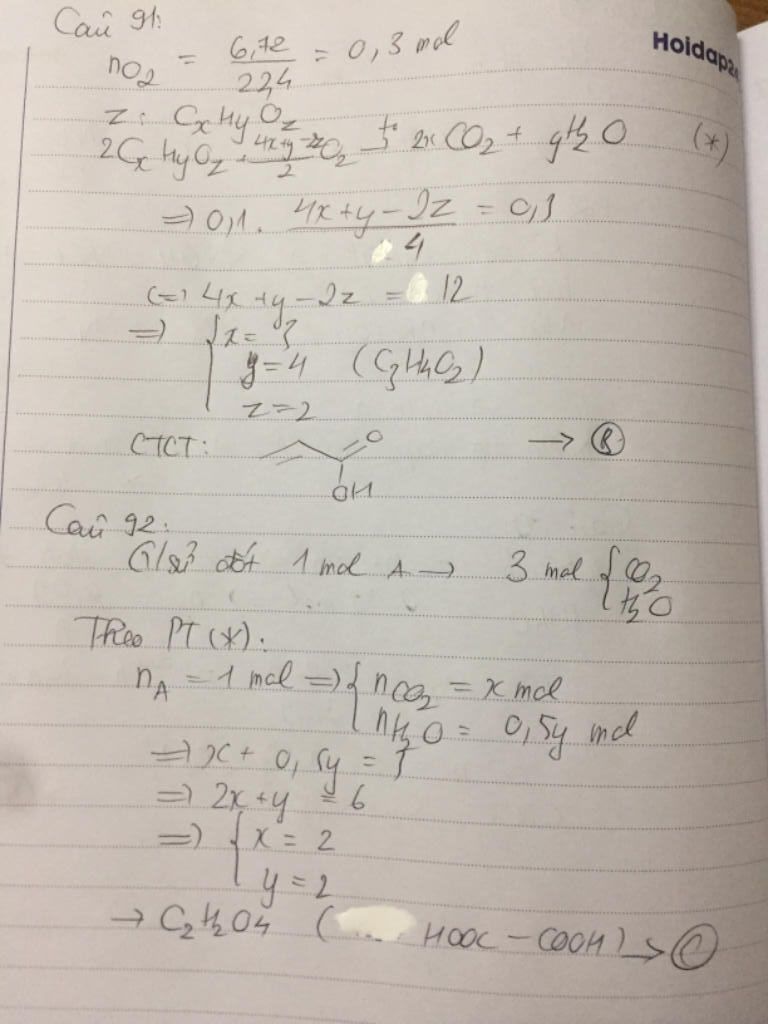 Câu 91:
Hoidap2
nO2 = 6,72/22,4 = 0,3 mol
Z: CxHyOz
2CxHyOz + (4x+y-2z)/2 O2 →(to) 2xCO2 + yH2O (*)
=> 0,1. (4x+y-2z)/4 = 0,3
<=> 4x+y-2z = 12
=> { x = 3
y = 4 (C3H4O2)
z = 2
CTCT: O → B
OH
Câu 92:
G/sử đốt 1 mol A → 3 mol { CO2
H2O
Theo PT(*):
nA = 1 mol => { nCO2 = x mol
nH2O = 0,5y mol
=> x + 0,5y = 3
=> 2x + y = 6
=> { x = 2
y = 2
→ C2H2O4 ( HOOC – COOH) → C